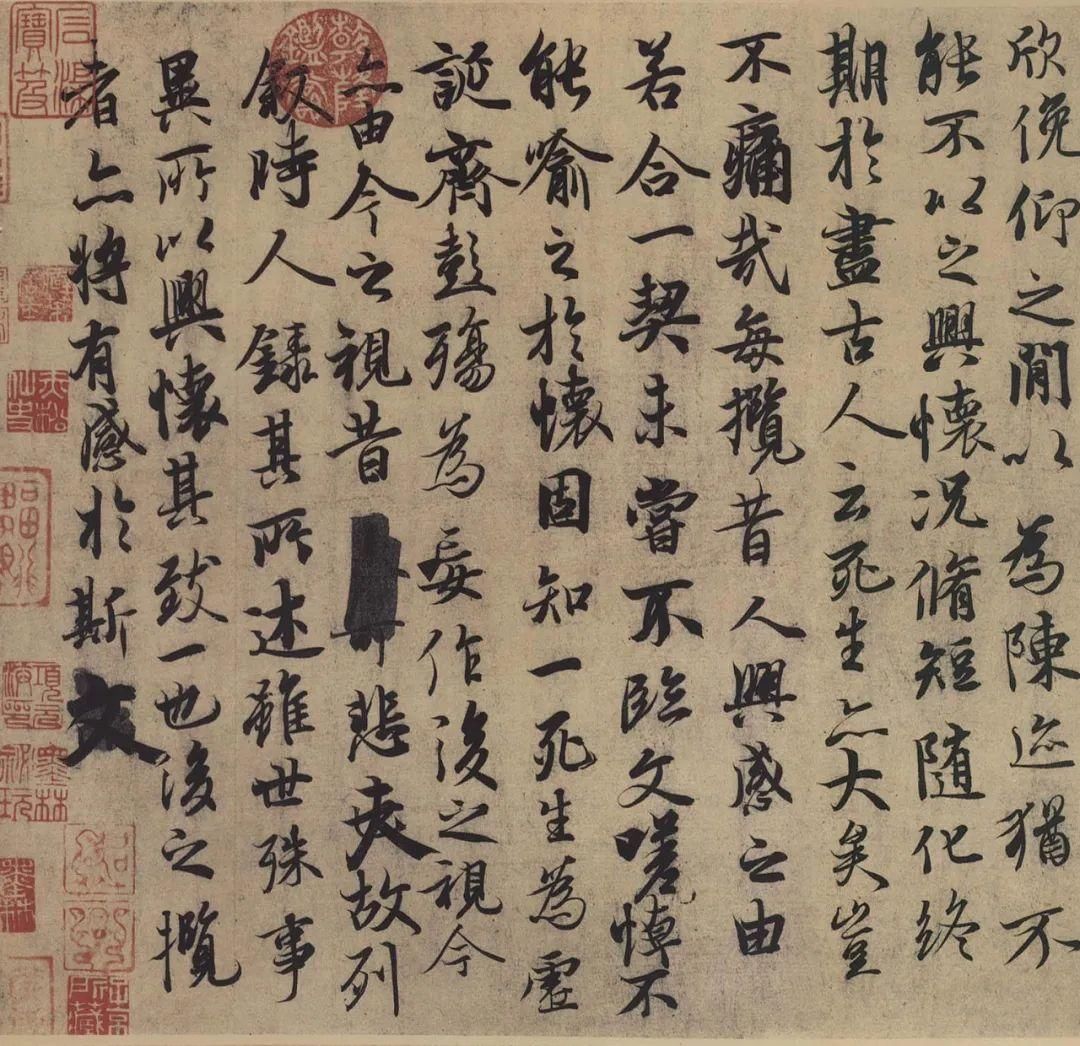 欣俛仰之閒以為陳迹猶不
能不以之興懷況脩短随化終
期於盡古人云死生亦大矣豈
不痛哉每攬昔人興感之由
若合一契未嘗不臨文嗟悼不
能喻之於懷固知一死生為虛
誕齊彭殤為妄作後之視今
亦由今之視昔悲夫故列
敘時人錄其所述雖世殊事
異所以興懷其致一也後之攬
者亦將有感於斯文